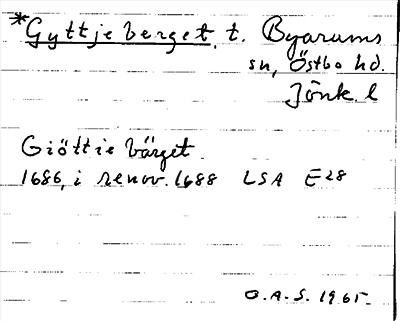 *Gyttjeberget, t. Byarums
sn, Östbo hd.
Jönk. l
Giöttie bärget
1686, i renov. 1688 LSA E28
O.A.S. 1965